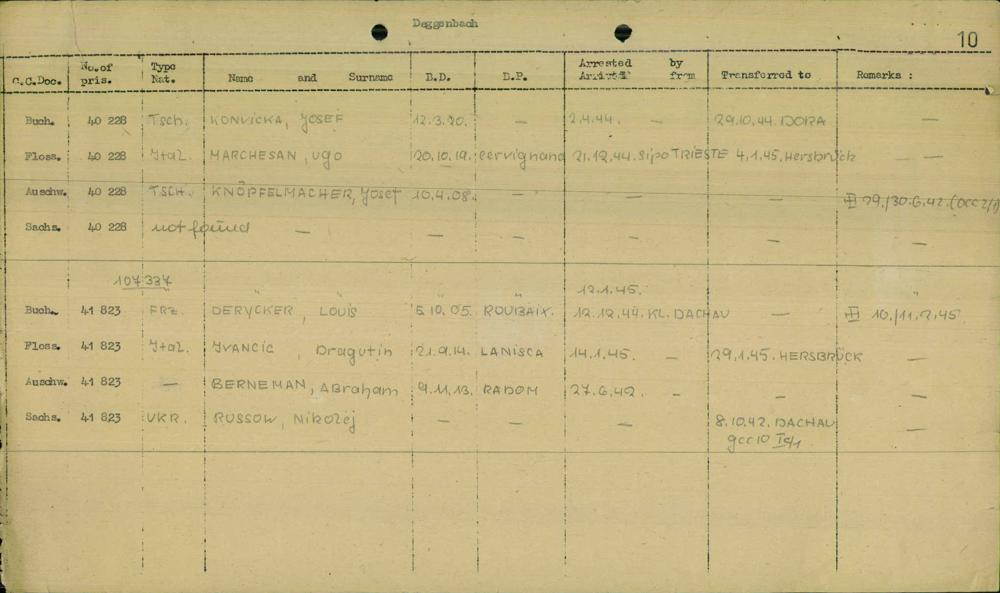 Deggenbach
10
C.C.Doc. No.of pris. Type Nat. Name and Surname B.D. D.P. Arrested by Arrived from Transferred to Remarks :
Buch. 40 228 Tsch. KONVICKA, JOSEF 12.3.20. — 2.4.44. — 29.10.44. DORA —
Floss. 40 228 Ital. MARCHESAN, Ugo 20.10.19. cervignano 21.12.44. Sipo TRIESTE 4.1.45. Hersbrück —
Auschw. 40 228 TSCH. KNÖPFELMACHER, Josef 10.4.08. — — — 29./30.6.42.
Sachs. 40 228 not found — — — — — —
107337
12.1.45.
Buch. 41 823 FRZ. DERYCKER, LOUIS 5.10.05. ROUBAIX. 12.12.44. KL. DACHAU — 10./11.2.45
Floss. 41 823 Ital. IVANCIC, Dragutin 21.9.14. LANISCA 14.1.45. — 29.1.45. HERSBRÜCK —
Auschw. 41 823 — BERNEMAN, Abraham 9.11.13. RADOM 27.6.42. — — —
Sachs. 41 823 UKR. RUSSOW, Nikolej — — — 8.10.42. DACHAU —
gcc10